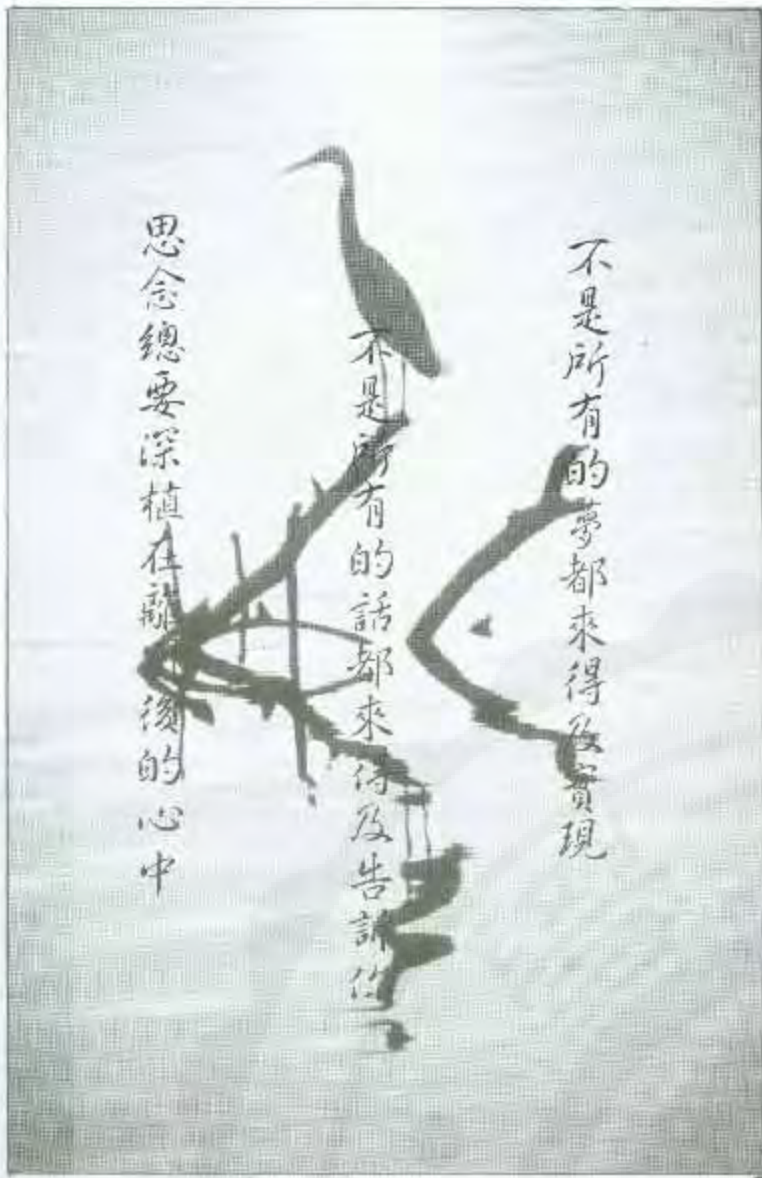 不是所有的夢都來得及實現
不是所有的話都來得及告訴你
思念總要深植在離後的心中